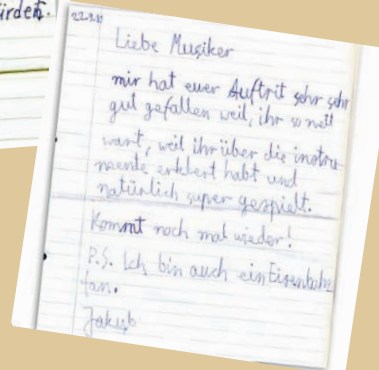 ürden.
22.9.11
Liebe Musiker
mir hat euer Auftrit sehr sehr
gut gefallen weil, ihr so nett
wart, weil ihr über die instru-
mente erklert habt und
natürlich super gespielt.
Kommt noch mal wieder!
P.S. Ich bin auch ein Eisenbahn
fan.
Jakub